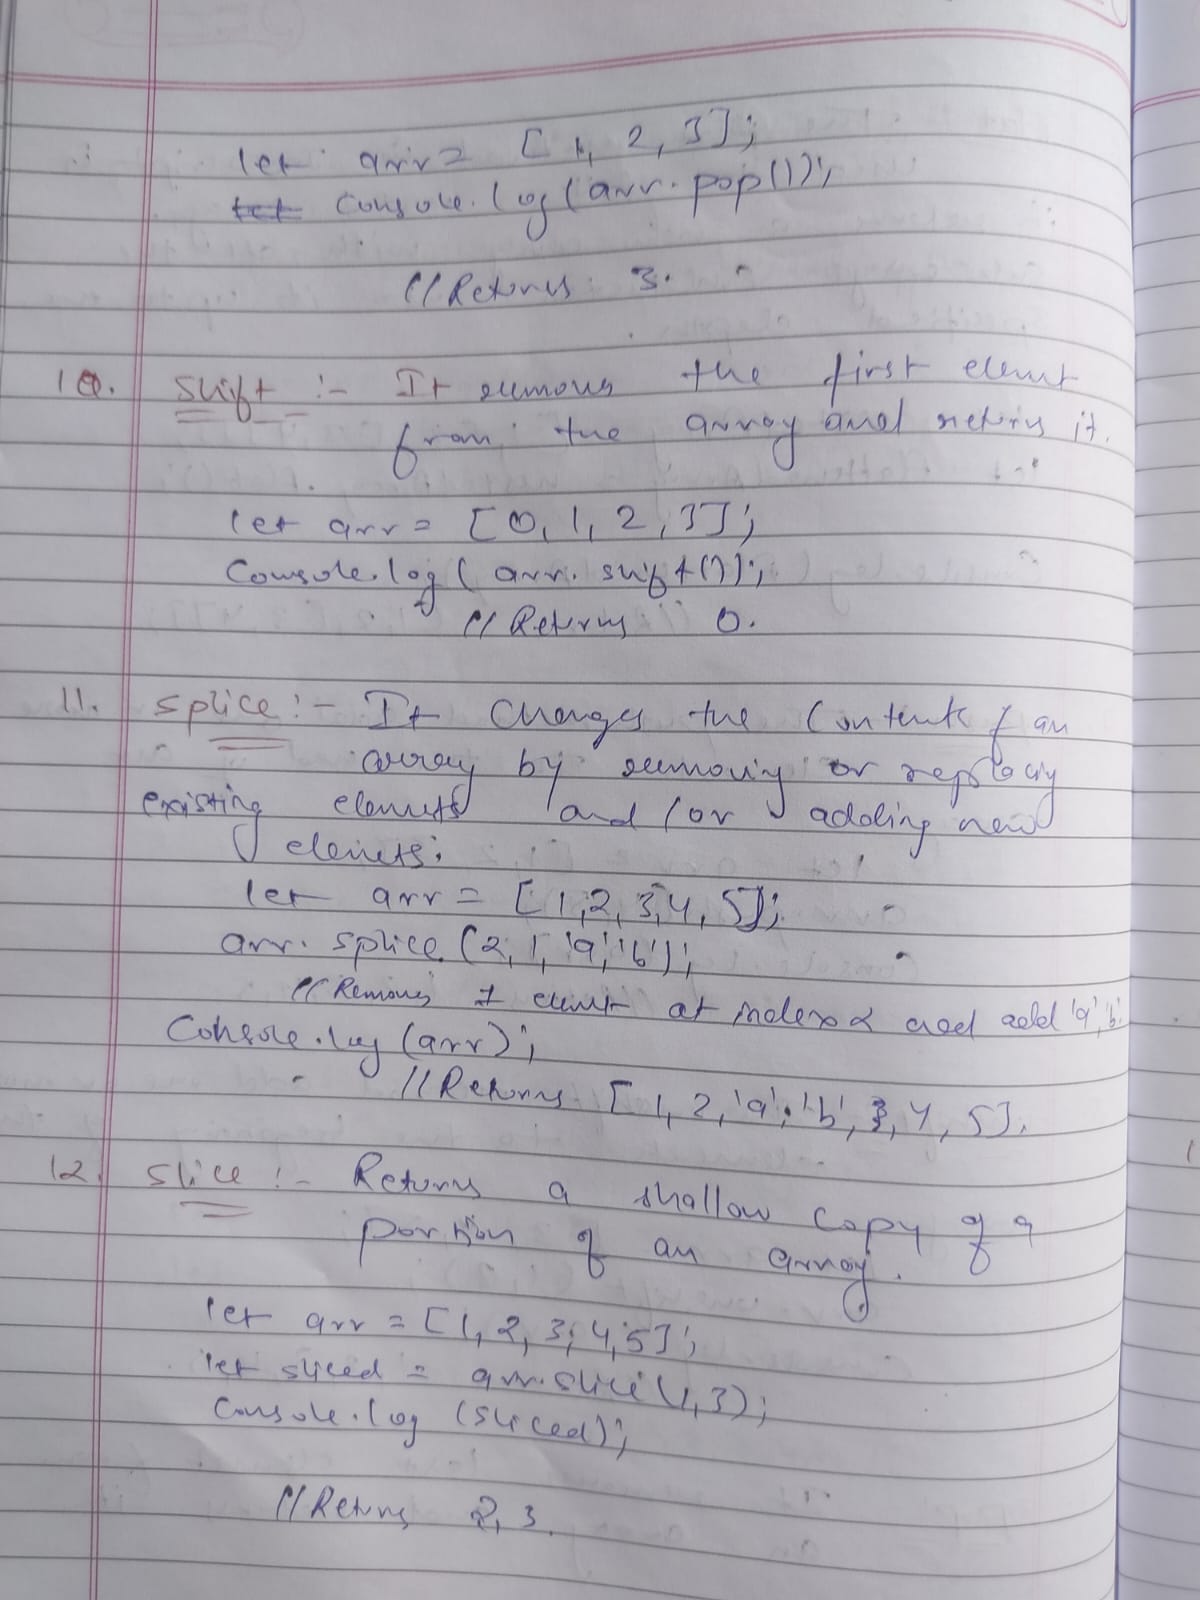 let arr = [1, 2, 3];
let console.log(arr.pop());
//Returns 3.
10. Shift :- It removes the first element
from the array and returns it.
let arr = [0, 1, 2, 3];
Console.log( arr. shift());
// Returns 0.
11. splice :- It changes the contents of an
array by removing or replacing
existing elements and/or adding new
elements.
let arr = [1,2,3,4,5];
arr. splice (2, 1, 'a', 'b');
// Removes 1 element at index 2 and add 'a', 'b'
Console.log (arr);
//Returns [1, 2, 'a', 'b', 3, 4, 5].
12. slice :- Returns a shallow copy of a
portion of an array.
let arr = [1, 2, 3, 4, 5];
let sliced = arr.slice(1,3);
Console.log (sliced);
//Returns 2, 3.